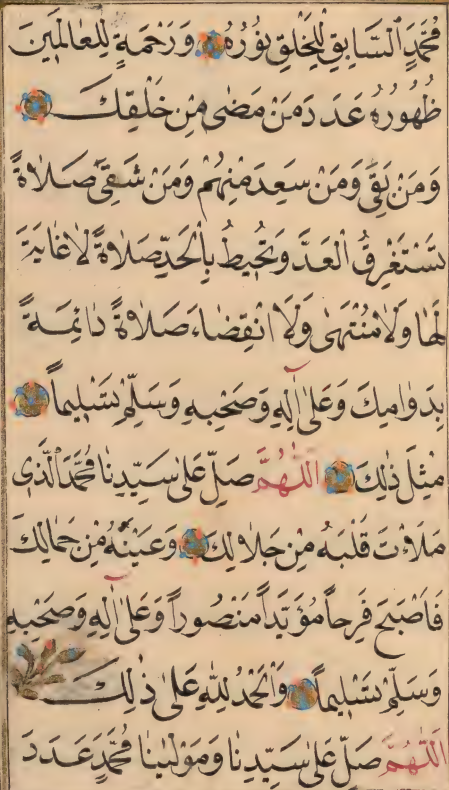 مُحَمَّدٍ السَّابِقِ لِلْخَلْقِ نُورُهُ وَرَحْمَةٍ لِلْعَالَمِينَ
ظُهُورُهُ عَدَدَ مَنْ مَضٰى مِنْ خَلْقِكَ
وَمَنْ بَقِيَ وَمَنْ سَعِدَ مِنْهُمْ وَمَنْ شَقِيَ صَلَاةً
تَسْتَغْرِقُ الْعَدَّ وَتُحِيطُ بِالْحَدِّ صَلَاةً لَا غَايَةَ
لَهَا وَلَا مُنْتَهٰى وَلَا انْقِضَاءَ صَلَاةً دَائِمَةً
بِدَوَامِكَ وَعَلٰى اٰلِهِ وَصَحْبِهِ وَسَلِّمْ تَسْلِيماً
مِثْلَ ذٰلِكَ اَللّٰهُمَّ صَلِّ عَلٰى سَيِّدِنَا مُحَمَّدٍ الَّذِى
مَلَأْتَ قَلْبَهُ مِنْ جَلَالِكَ وَعَيْنَهُ مِنْ جَمَالِكَ
فَاَصْبَحَ فَرِحاً مُؤَيَّداً مَنْصُوراً وَعَلٰى اٰلِهِ وَصَحْبِهِ
وَسَلِّمْ تَسْلِيماً وَالْحَمْدُ لِلّٰهِ عَلٰى ذٰلِكَ
اَللّٰهُمَّ صَلِّ عَلٰى سَيِّدِنَا وَمَوْلٰينَا مُحَمَّدٍ عَدَدَ